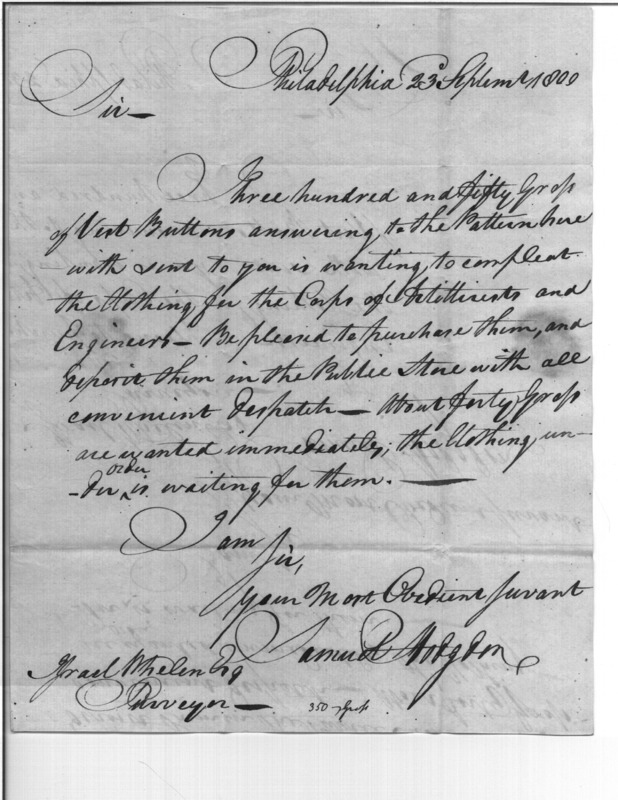 Philadelphia 23d Septemr 1800
Sir—
Three hundred and fifty Gross
of Vest Buttons answering to the Pattern here
with sent to you is wanting to compleat
the Clothing for the Corps of Artillirests and
Engineers— Be pleased to purchase them, and
deposit them in the Public Store with all
convenient despatch— About forty Gross
are wanted immediately; the Clothing un-
-der order is waiting for them.—
I am
Sir,
your Most Obedient Servant
Samuel Hodgdon
Israel Whelen Esq
Purveyor—
350 Gross